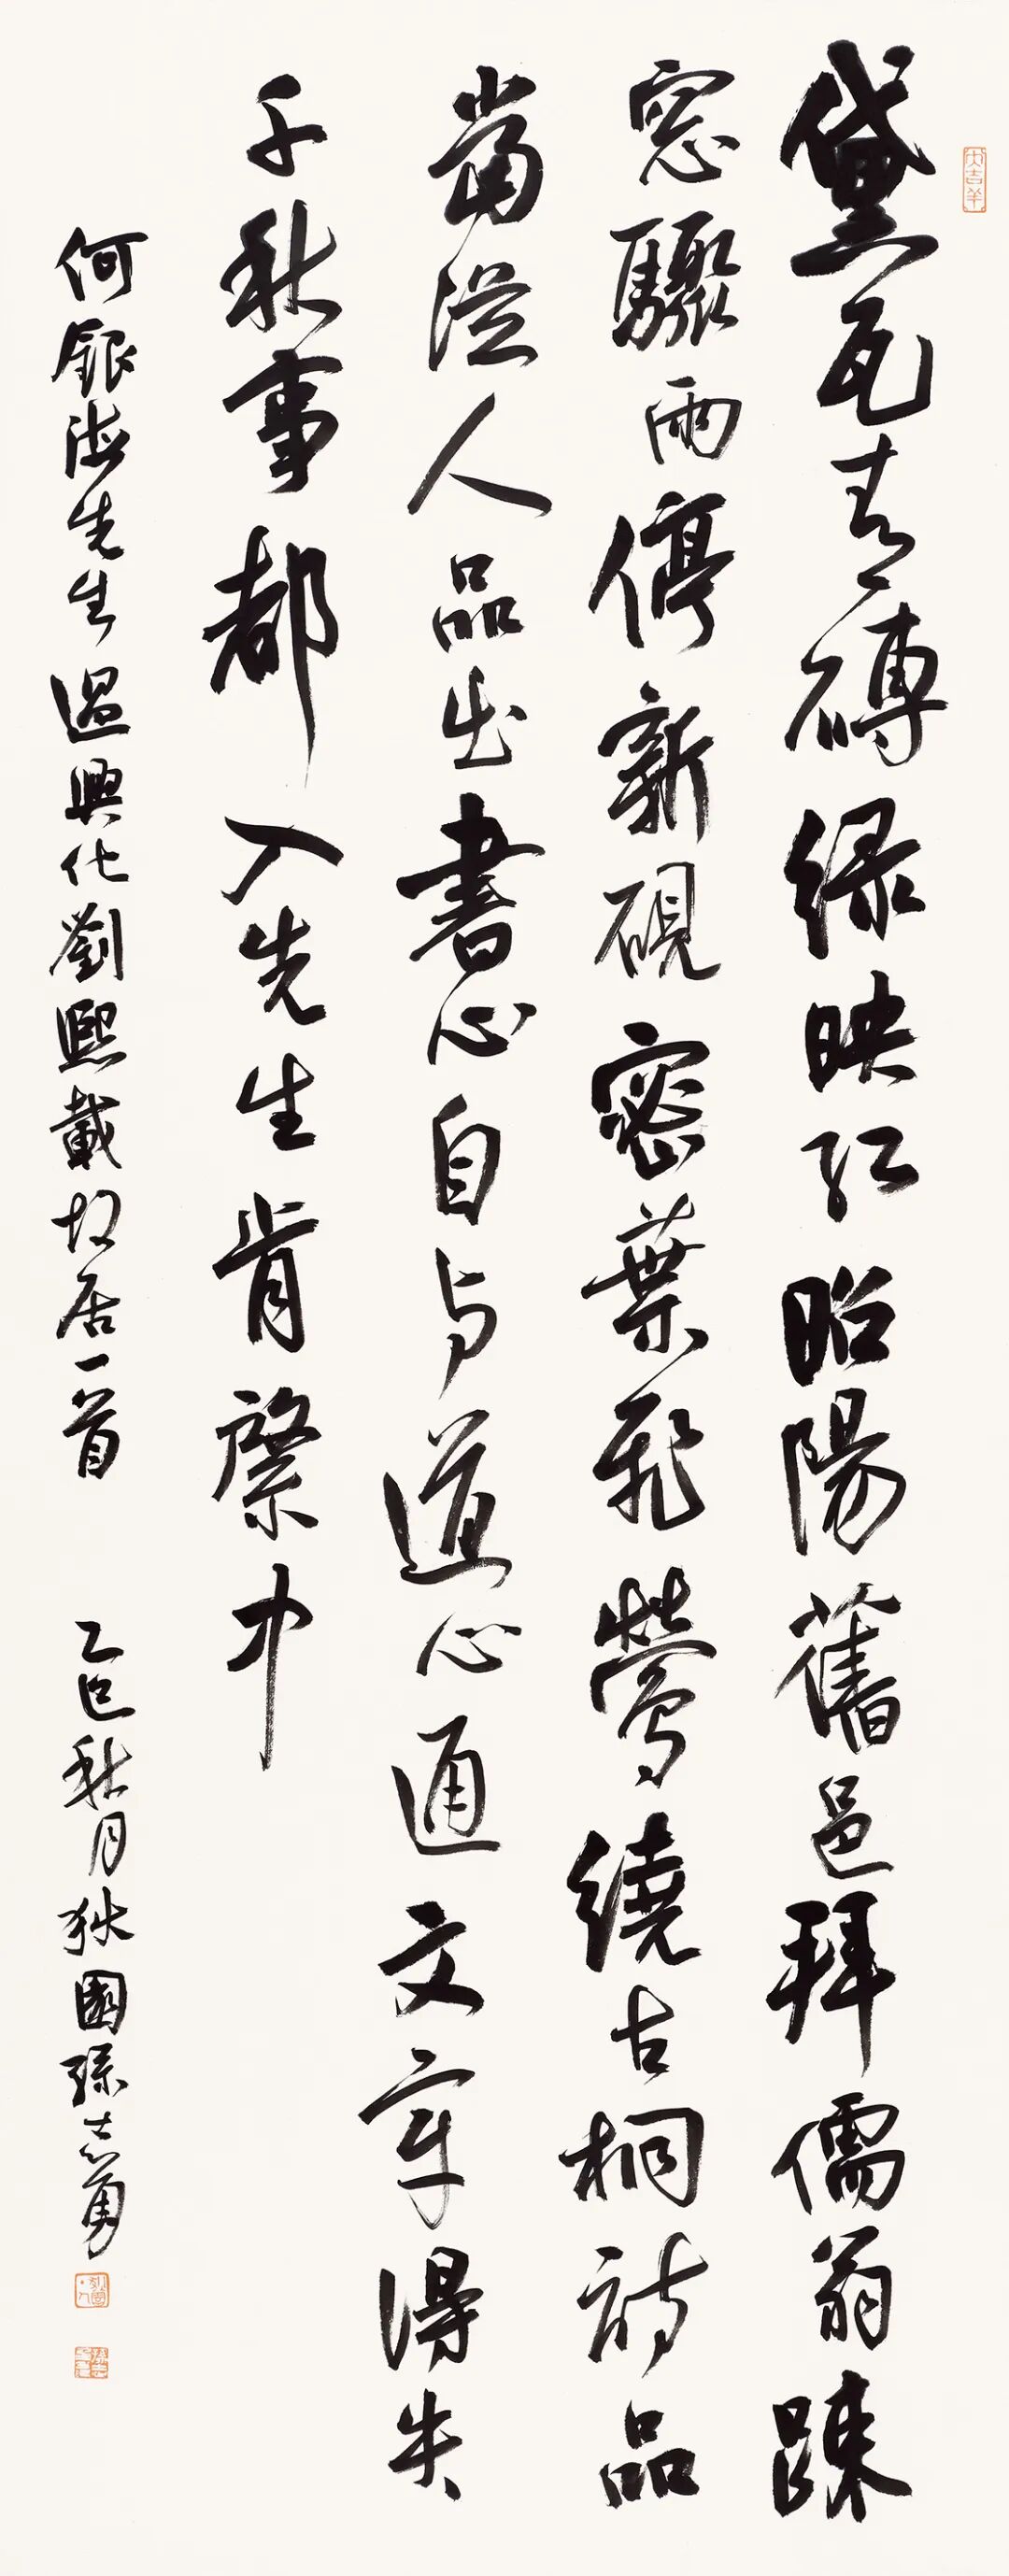 黛瓦青磚緑映紅昭陽舊邑拜儒翁踈
窓驟雨停新硯密葉飛鶯繞古桐詩品
當從人品出書心自与道心通文章得失
千秋事都入先生肯綮中
何銀海先生過興化劉熙載故居一首 乙巳秋月狄園孫志勇
大吉羊